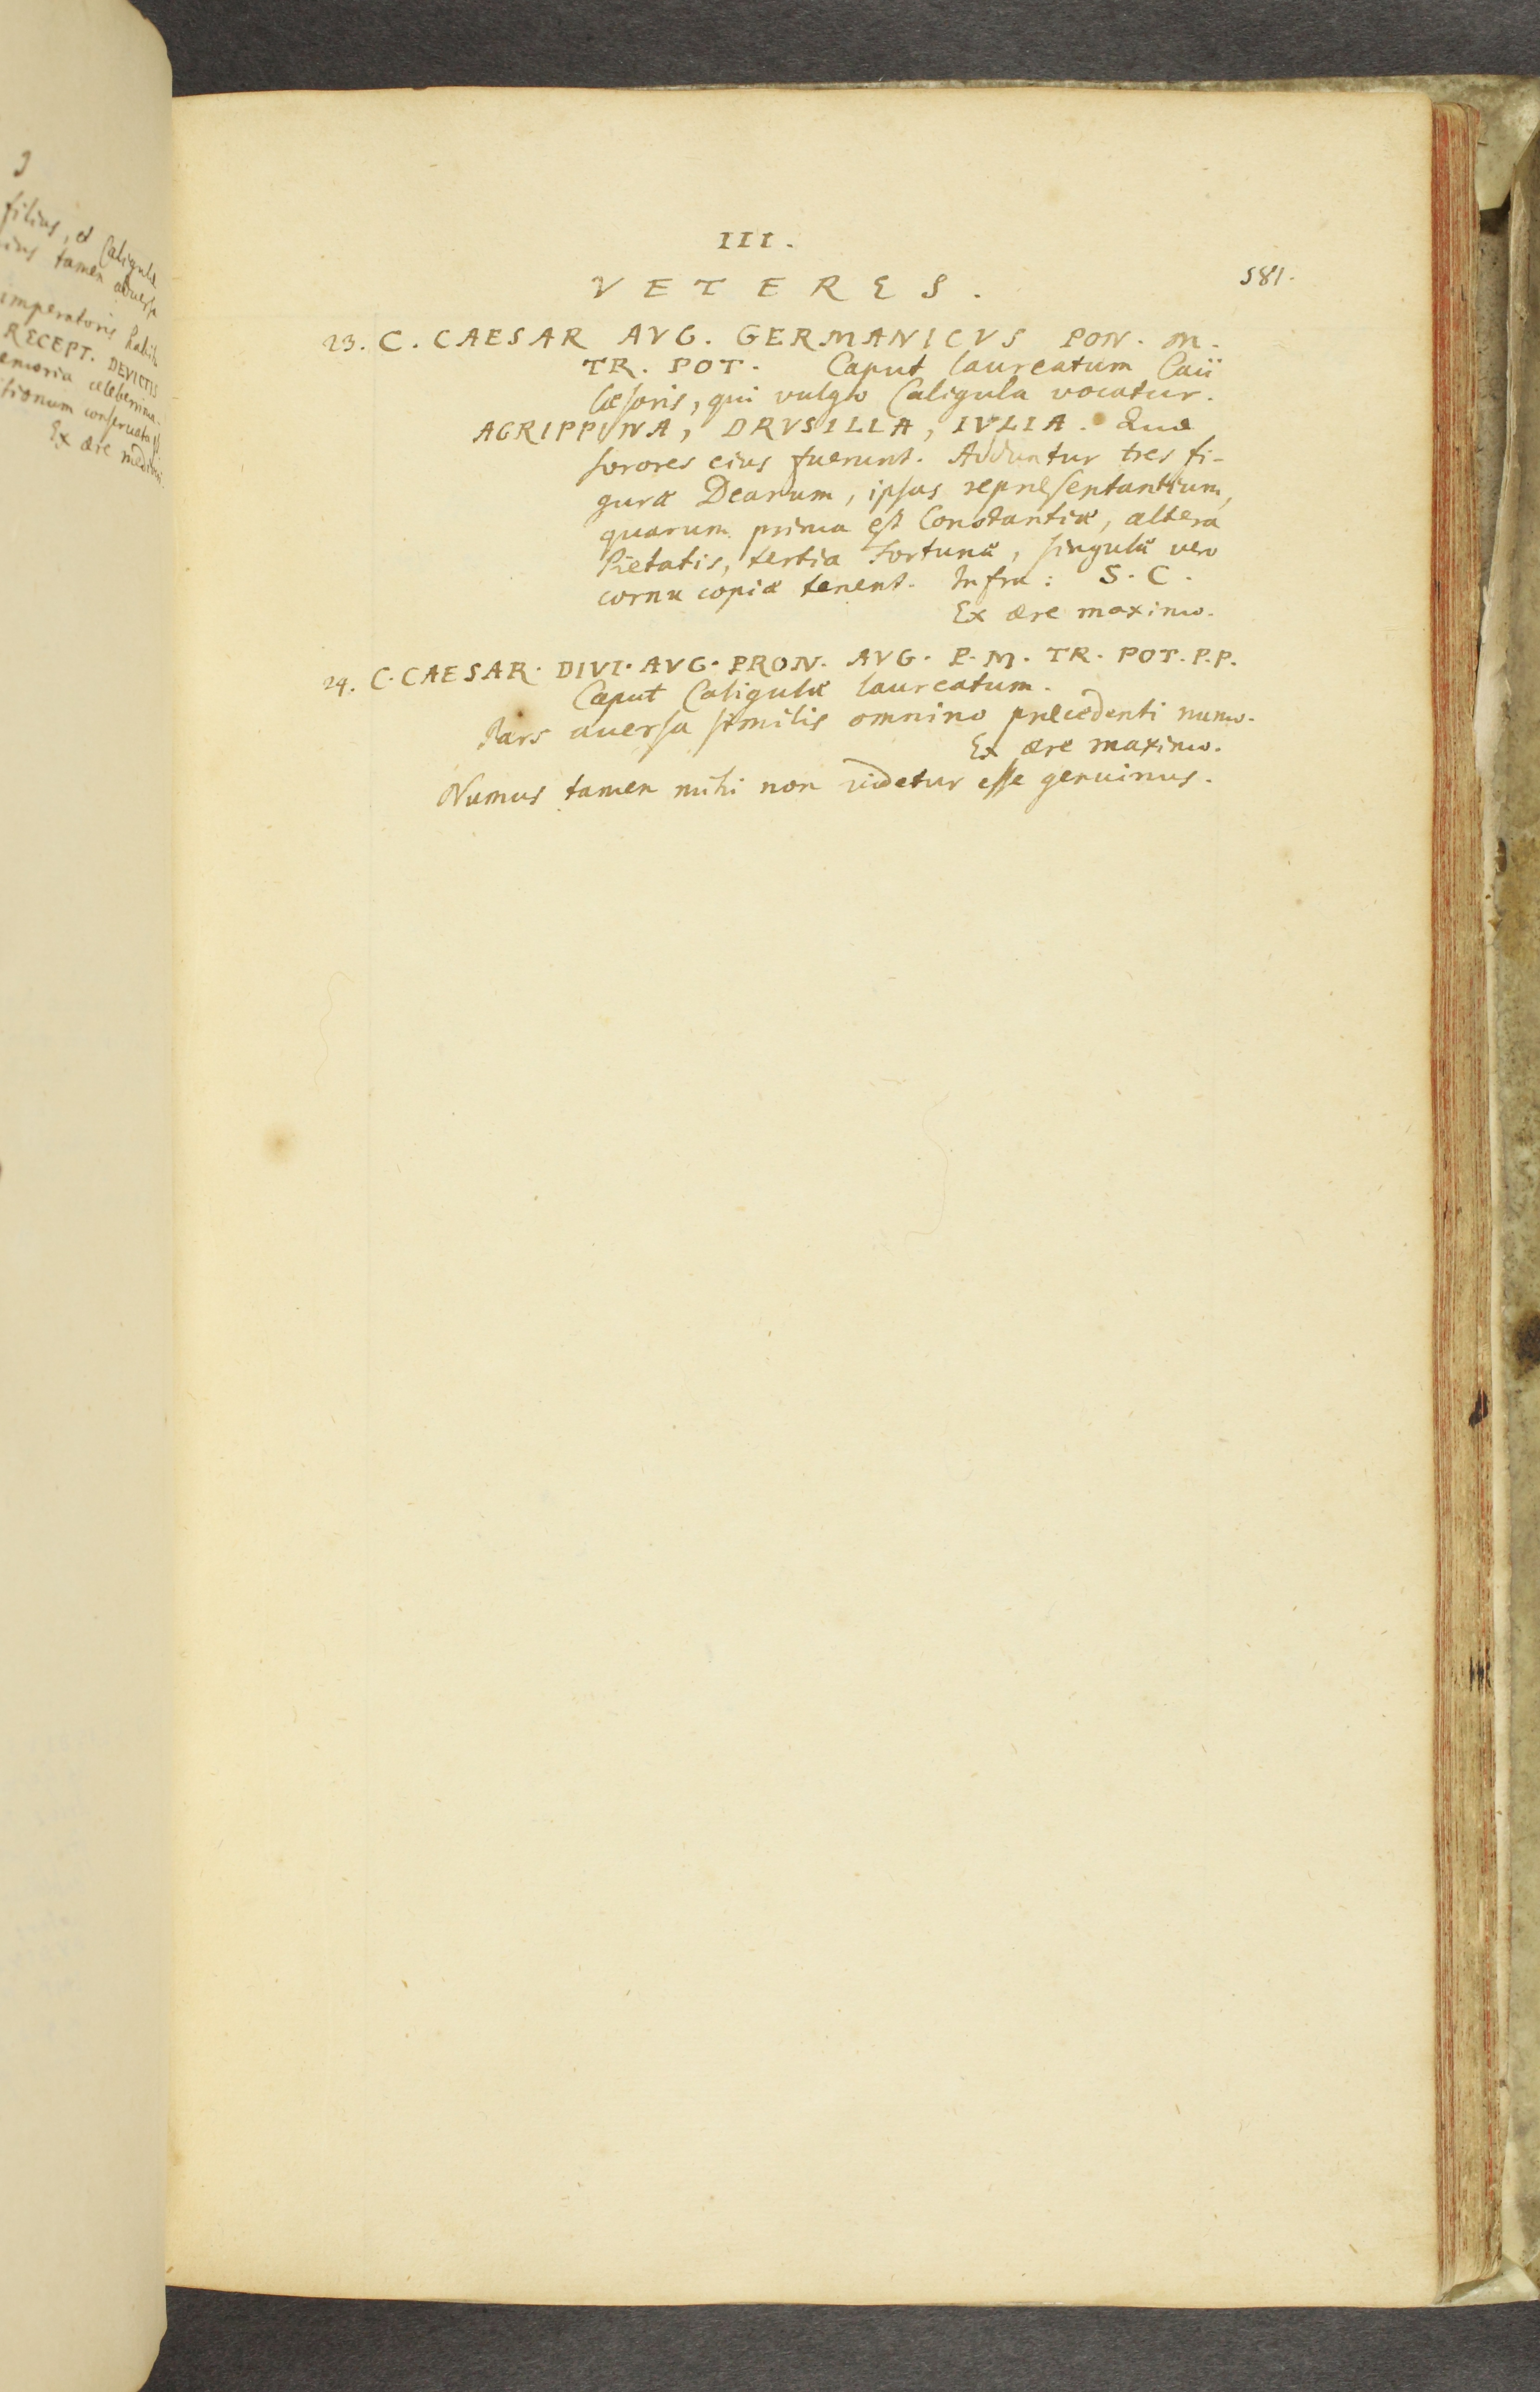 filius, et Caligula
ius tamen aduersa
imperatoris habitu
RECEPT. DEVICTIS
emoria celeberrima
tionum conseruata
Ex ære medio
III.
VETERES.
581.
23. C. CAESAR AVG. GERMANICVS PON. M.
TR. POT. Caput laureatum Caii
Cæsaris, qui vulgo Caligula vocatur.
AGRIPPINA, DRVSILLA, IVLIA. Quæ
sorores eius fuerunt. Adduntur tres fi-
guræ Dearum, ipsas repræsentantium,
quarum prima est Constantiæ, altera
Pietatis, tertia Fortunæ, singulæ vero
cornu copiæ tenent. Infra: S. C.
Ex ære maximo.
24. C. CAESAR. DIVI. AVG. PRON. AVG. P. M. TR. POT. P. P.
Caput Caligulæ laureatum.
Pars auersa similis omnino præcedenti numo.
Ex ære maximo.
Numus tamen mihi non videtur esse genuinus.